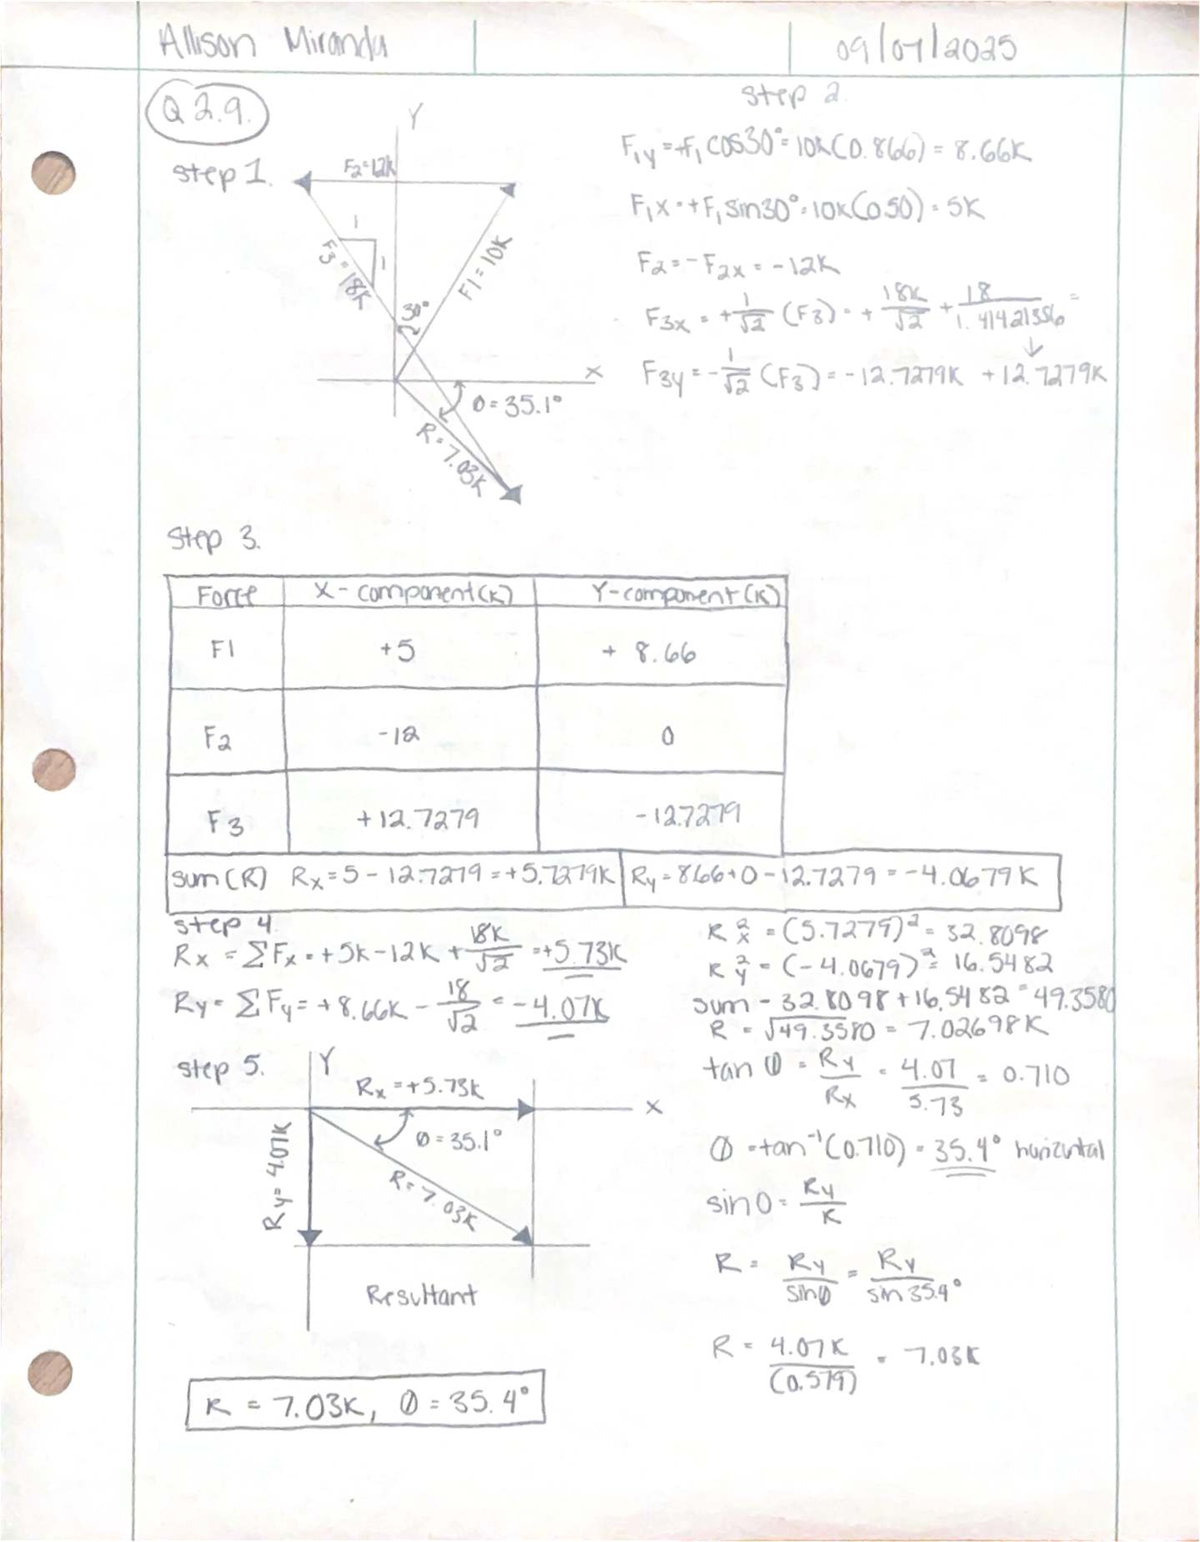 Allison Miranda
09/07/2025
Q 2.9.
step 1.
Y
F2=12K
1
1
F3=18K
F1=10K
30°
X
θ=35.1°
R=7.03K
step 2.
F₁y=+F₁ cos30°=10K(0.866)=8.66K
F₁x=+F₁ sin30°=10K(0.50)=5K
F2=-F2x=-12K
F3x=+1/√2 (F3)=+18K/√2 +18/1.41421356=
↓
F3y=-1/√2 (F3)=-12.7279K +12.7279K
Step 3.
Force X-component(K) Y-component(K)
F1 +5 +8.66
F2 -12 0
F3 +12.7279 -12.7279
sum(R) Rx=5-12.7279=+5.7279K Ry=8.66+0-12.7279=-4.0679K
step 4.
Rx=ΣFx=+5K-12K+18K/√2=+5.73K
Ry=ΣFy=+8.66K-18/√2=-4.07K
R²x=(5.7279)²=32.8098
R²y=(-4.0679)²=16.5482
sum-32.8098+16.5482=49.3580
R=√49.3580=7.02698K
tan θ=Ry/Rx=4.07/5.73=0.710
θ=tan⁻¹(0.710)=35.4° horizontal
sinθ=Ry/R
R=Ry/sinθ=Ry/sin35.4°
R=4.07K/(0.579)=7.03K
step 5.
Y
Rx=+5.73K
X
θ=35.1°
Ry=4.07K
R=7.03K
Resultant
R=7.03K, θ=35.4°